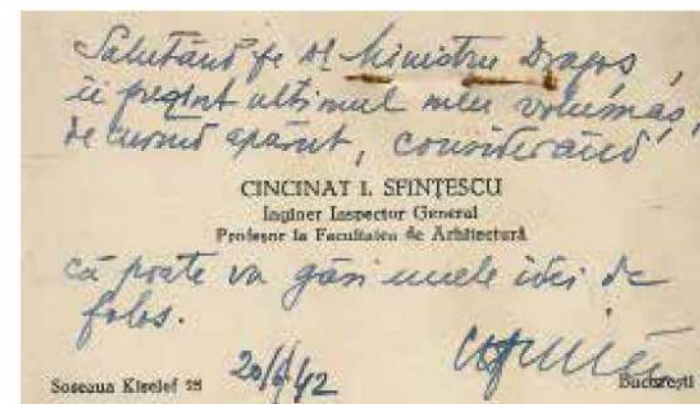 Salutând pe Dl Ministru Dragoș,
îi prezint ultimul meu volumaș,
de curând apărut, considerând
CINCINAT I. SFINȚESCU
Inginer Inspector General
Profesor la Facultatea de Arhitectură
că poate va găsi unele idei de
folos.
Șoseaua Kiselef
București